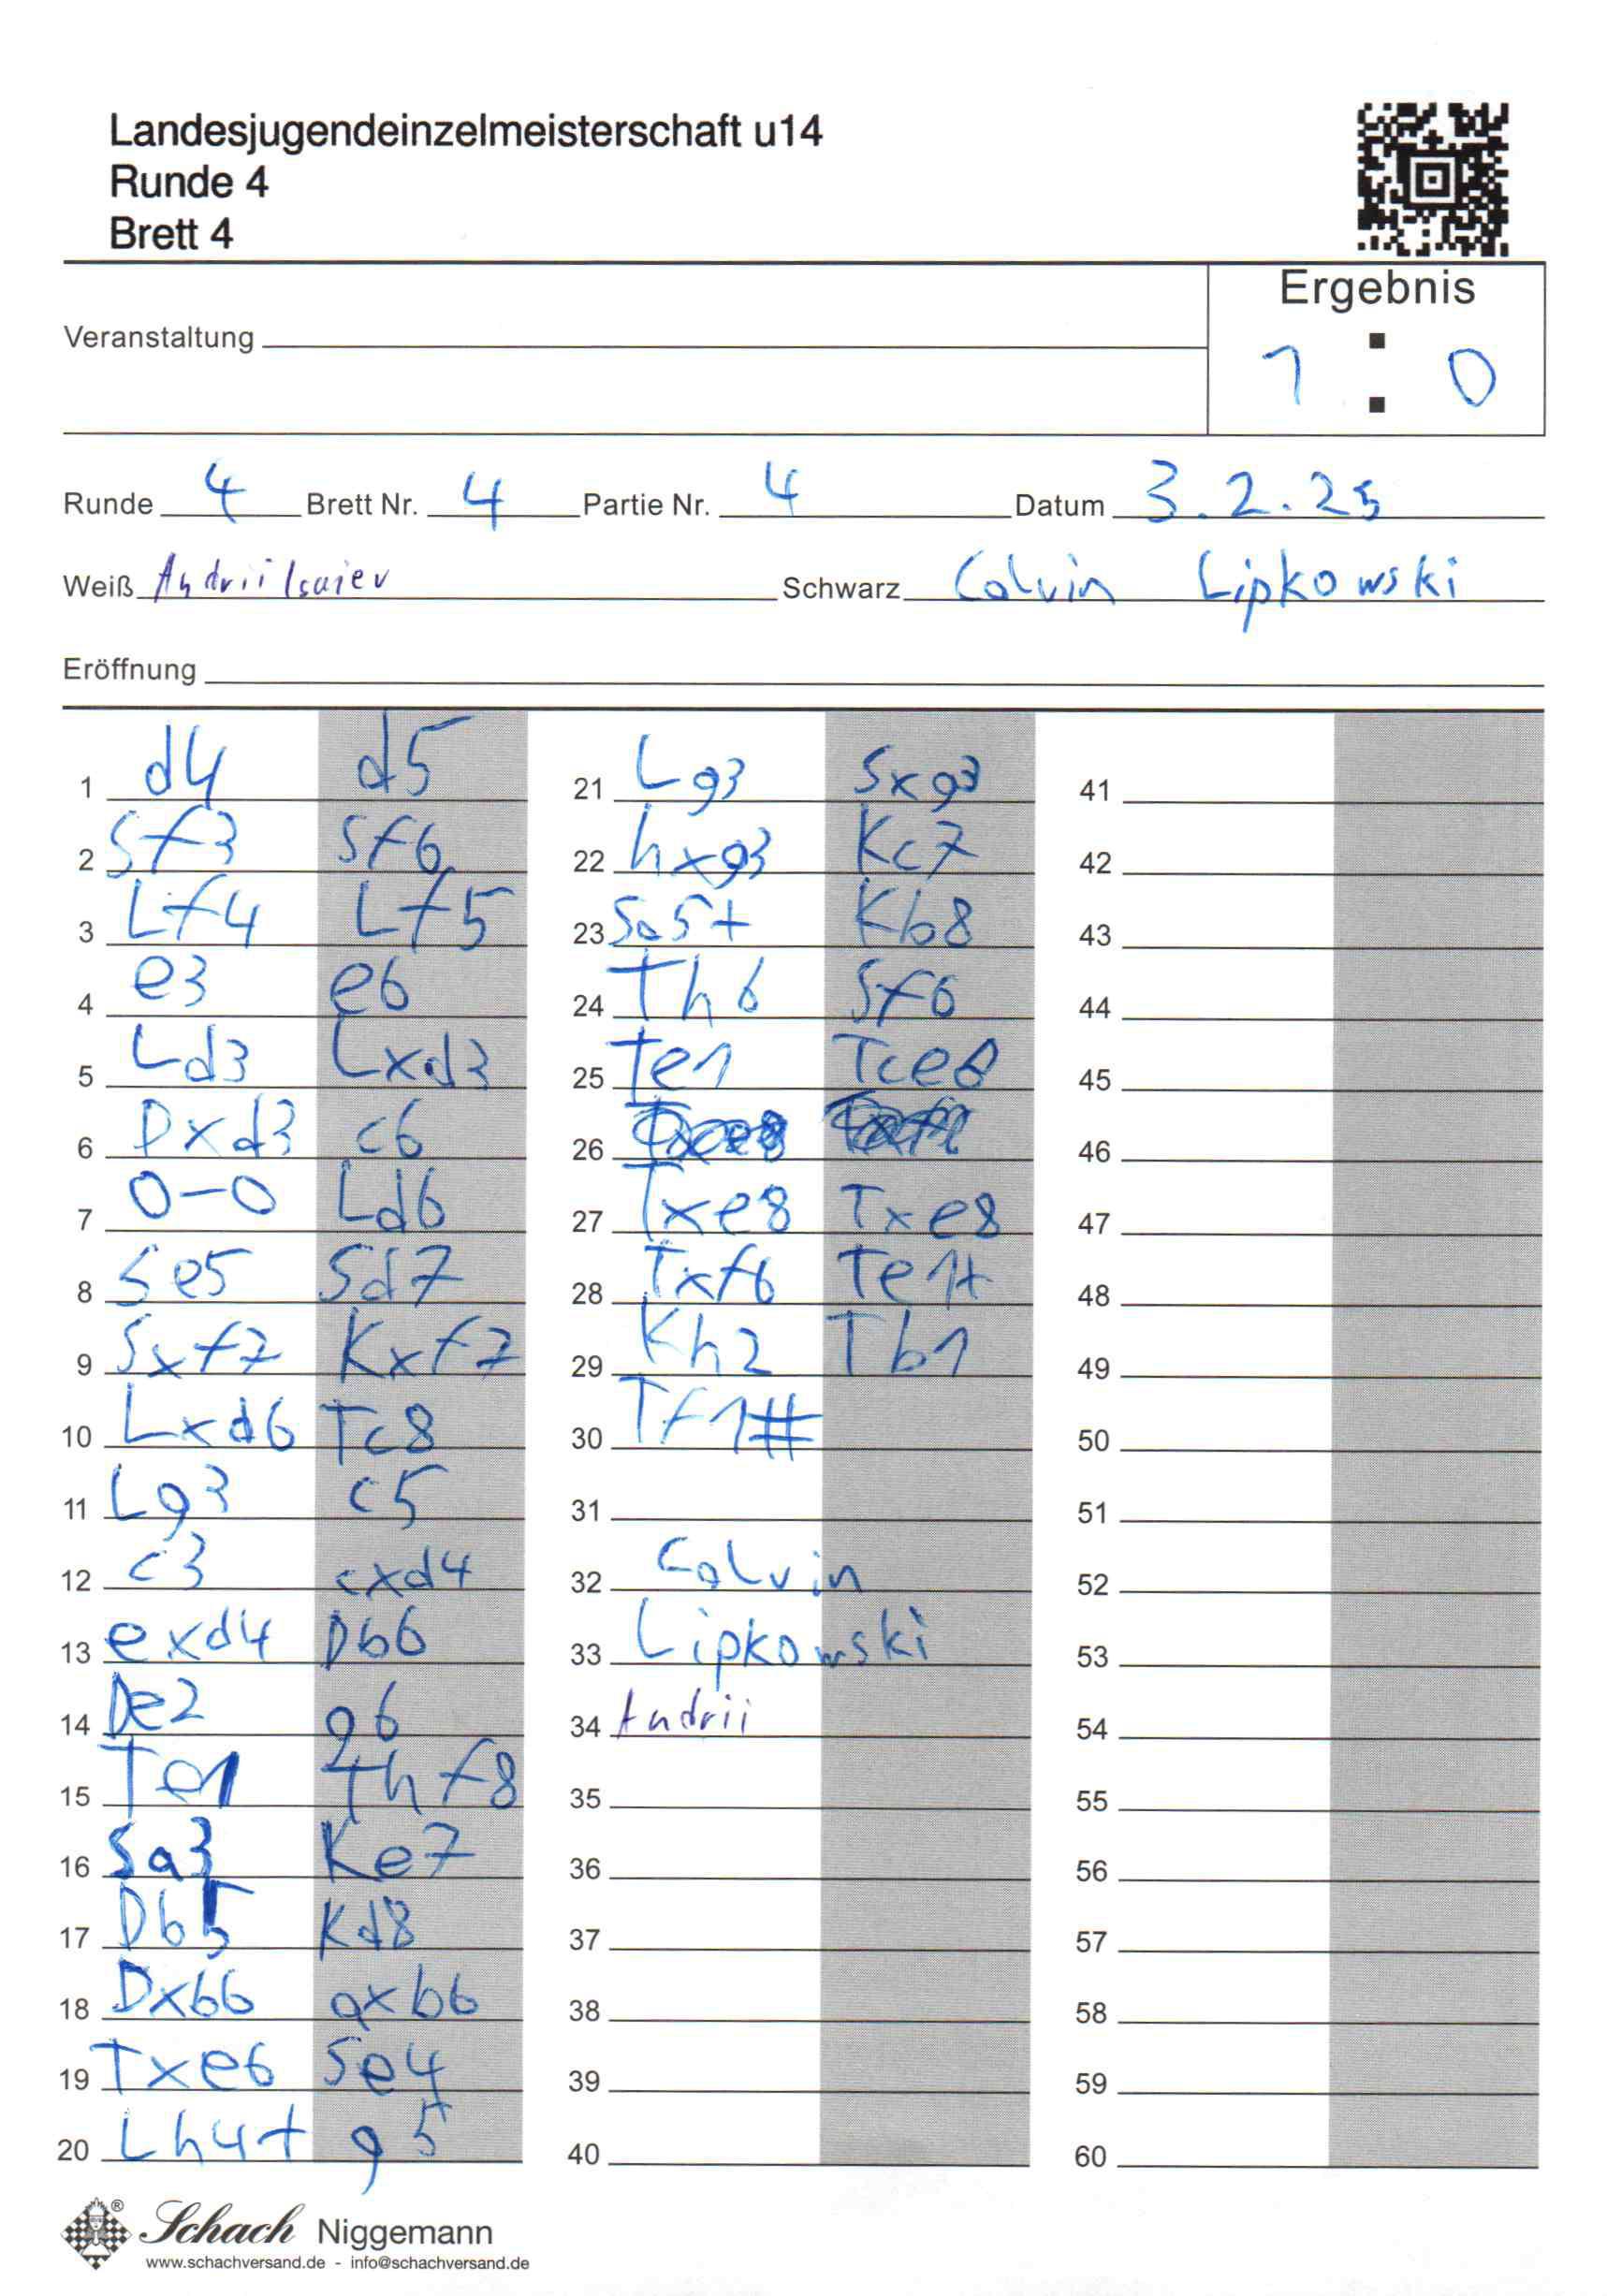 Landesjugendeinzelmeisterschaft u14
Runde 4
Brett 4
Ergebnis
Veranstaltung
1 : 0
Runde 4 Brett Nr. 4 Partie Nr. 4 Datum 3.2.25
Weiß Andrii Isaiev Schwarz Calvin Lipkowski
Eröffnung
1 d4 d5
2 Sf3 Sf6
3 Lf4 Lf5
4 e3 e6
5 Ld3 Lxd3
6 Dxd3 c6
7 0-0 Ld6
8 Se5 Sd7
9 Sxf7 Kxf7
10 Lxd6 Tc8
11 Lg3 c5
12 c3 cxd4
13 exd4 Db6
14 De2 g6
15 Te1 Thf8
16 Sa3 Ke7
17 Db5 Kd8
18 Dxb6 axb6
19 Txe6 Se4
20 Lh4+ g5
21 Lg3 Sxg3
22 hxg3 Kc7
23 Sa5+ Kb8
24 Th6 Sf6
25 Te1 Tce8
26
27 Txe8 Txe8
28 Txf6 Te1+
29 Kh2 Tb1
30 Tf1#
31
32 Calvin
33 Lipkowski
34 Andrii
35
36
37
38
39
40
41
42
43
44
45
46
47
48
49
50
51
52
53
54
55
56
57
58
59
60
Schach Niggemann
www.schachversand.de - info@schachversand.de